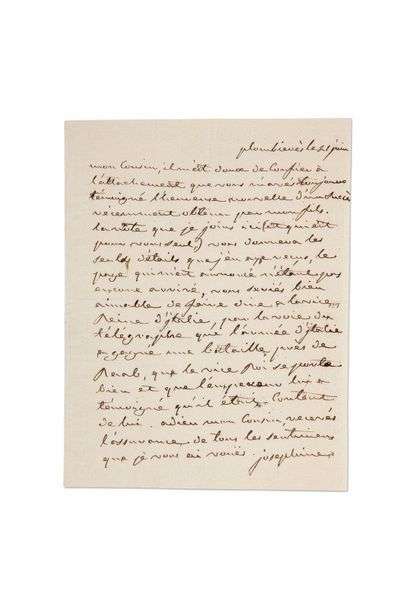 plombieres le 21 juin
mon Cousin, il m'est doux de Confier a
l'attachement que vous m'avez toujours
témoigné l'heureuse nouvelle d'un succès
récemment obtenu par mon fils.
la note que je joins ici (et qui est
pour vous seul) vous donnera les
seuls détails que j'en aye reçus, le
page qui m'est annoncé n'étant pas
encore arrivé, vous seriés bien
aimable de faire dire a la vice
Reine d'italie, par la voie du
télégraphe que l'armée d'italie
a gagné une bataille près de
Raab, que le vice Roi se porte
bien et que l'empereur lui a
témoigné qu'il était Content
de lui. adieu mon Cousin, recevés
l'assurance de tous les sentimens
que je vous ai voués. josephine